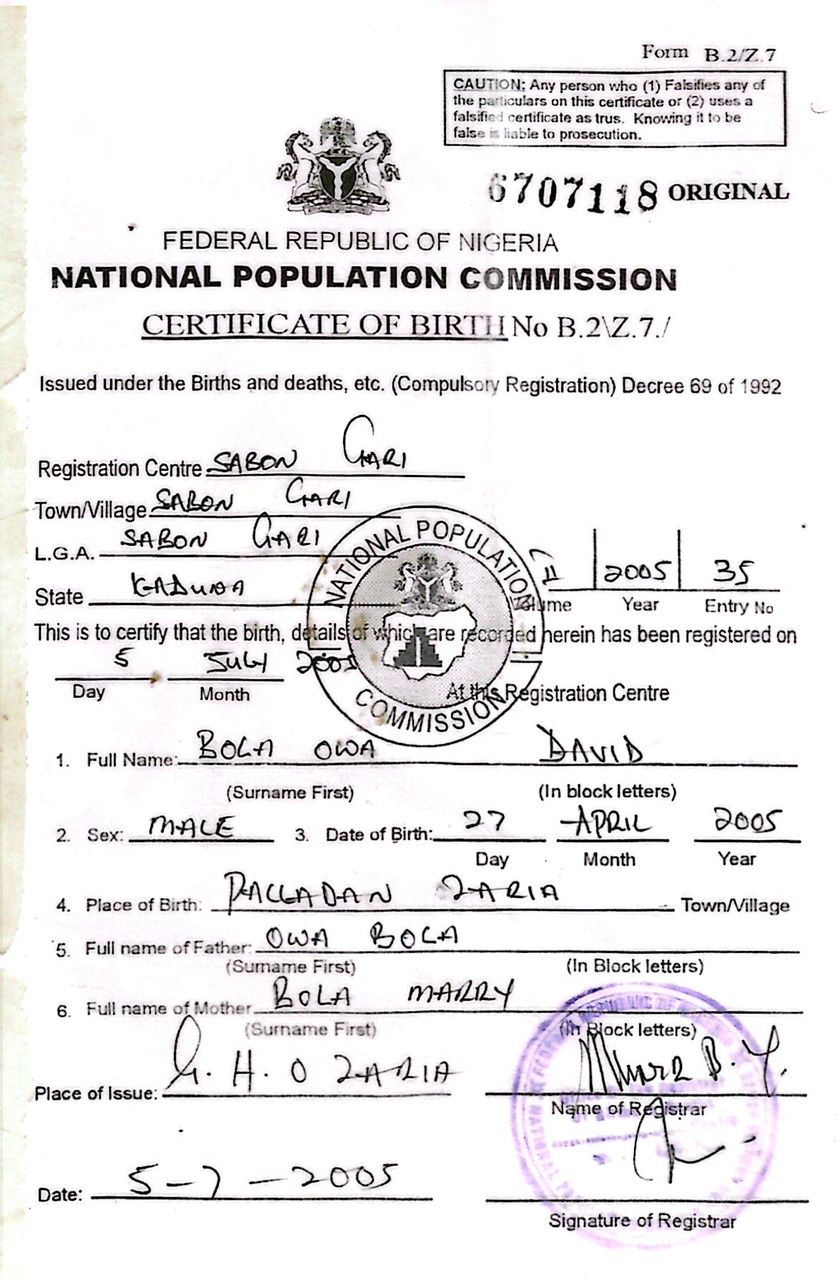 Form B.2/Z.7
CAUTION: Any person who (1) Falsifies any of
the particulars on this certificate or (2) uses a
falsified certificate as trus. Knowing it to be
false is liable to prosecution.
6707118 ORIGINAL
FEDERAL REPUBLIC OF NIGERIA
NATIONAL POPULATION COMMISSION
CERTIFICATE OF BIRTH No B.2\Z.7./
Issued under the Births and deaths, etc. (Compulsory Registration) Decree 69 of 1992
Registration Centre SABON GARI
Town/Village SABON GARI
L.G.A. SABON GARI
NATIONAL POPULATION
COMMISSION
State KADUNA
2005 35
Volume Year Entry No
This is to certify that the birth, details of which are recorded herein has been registered on
5 JULY 2005
Day Month At this Registration Centre
1. Full Name: BOLA OWA DAVID
(Surname First) (In block letters)
2. Sex: MALE 3. Date of Birth: 27 APRIL 2005
Day Month Year
4. Place of Birth: PALLADAN ZARIA Town/Village
5. Full name of Father: OWA BOLA
(Surname First) (In Block letters)
6. Full name of Mother BOLA MARRY
(Surname First) (In Block letters)
Place of Issue: G. H. O ZARIA B. Y.
Name of Registrar
Date: 5-7-2005
Signature of Registrar